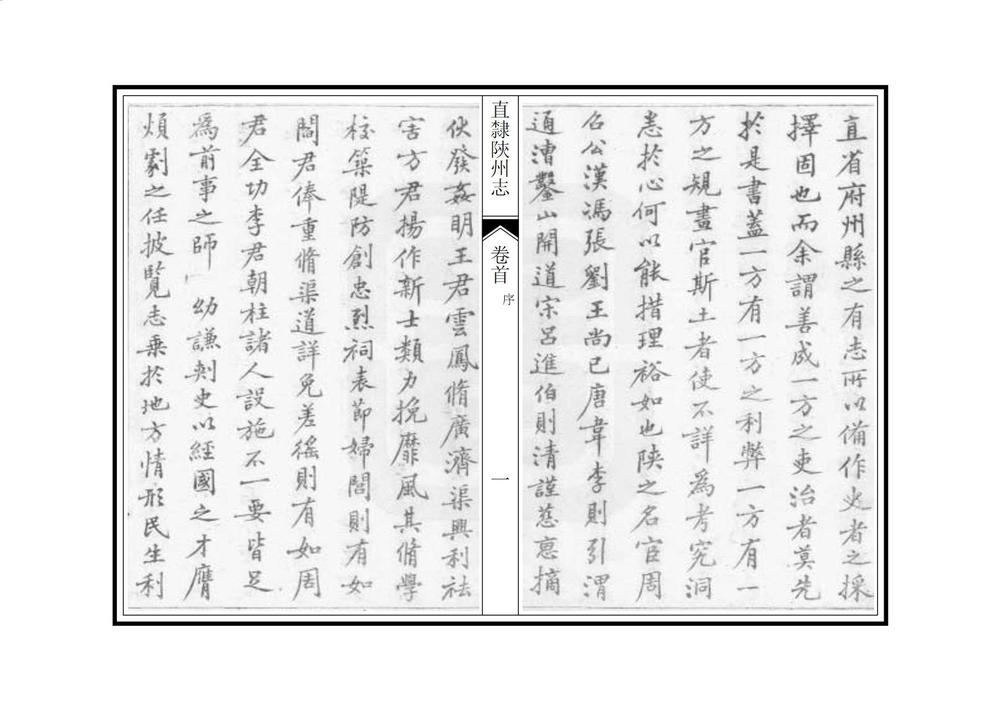 直省府州縣之有志所以備作史者之採
擇固也而余謂善成一方之吏治者莫先
於是書蓋一方有一方之利弊一方有一
方之規畫官斯土者使不詳為考究洞
悉於心何以能措理裕如也陝之名宦周
召公漢馮張劉王尚已唐韋李則引渭
通漕鑿山開道宋呂進伯則清謹慈惠摘
直隸陝州志
卷首
序
一
伙發姦明王君雲鳳脩廣濟渠興利祛
害方君揚作新士類力挽靡風其脩學
校築隄防創忠烈祠表節婦閭則有如
閻君俸重脩渠道詳免差徭則有如周
君全功李君朝柱諸人設施不一要皆足
為前事之師
幼謙刾史以經國之才膺
煩劇之任披覽志乗於地方情形民生利